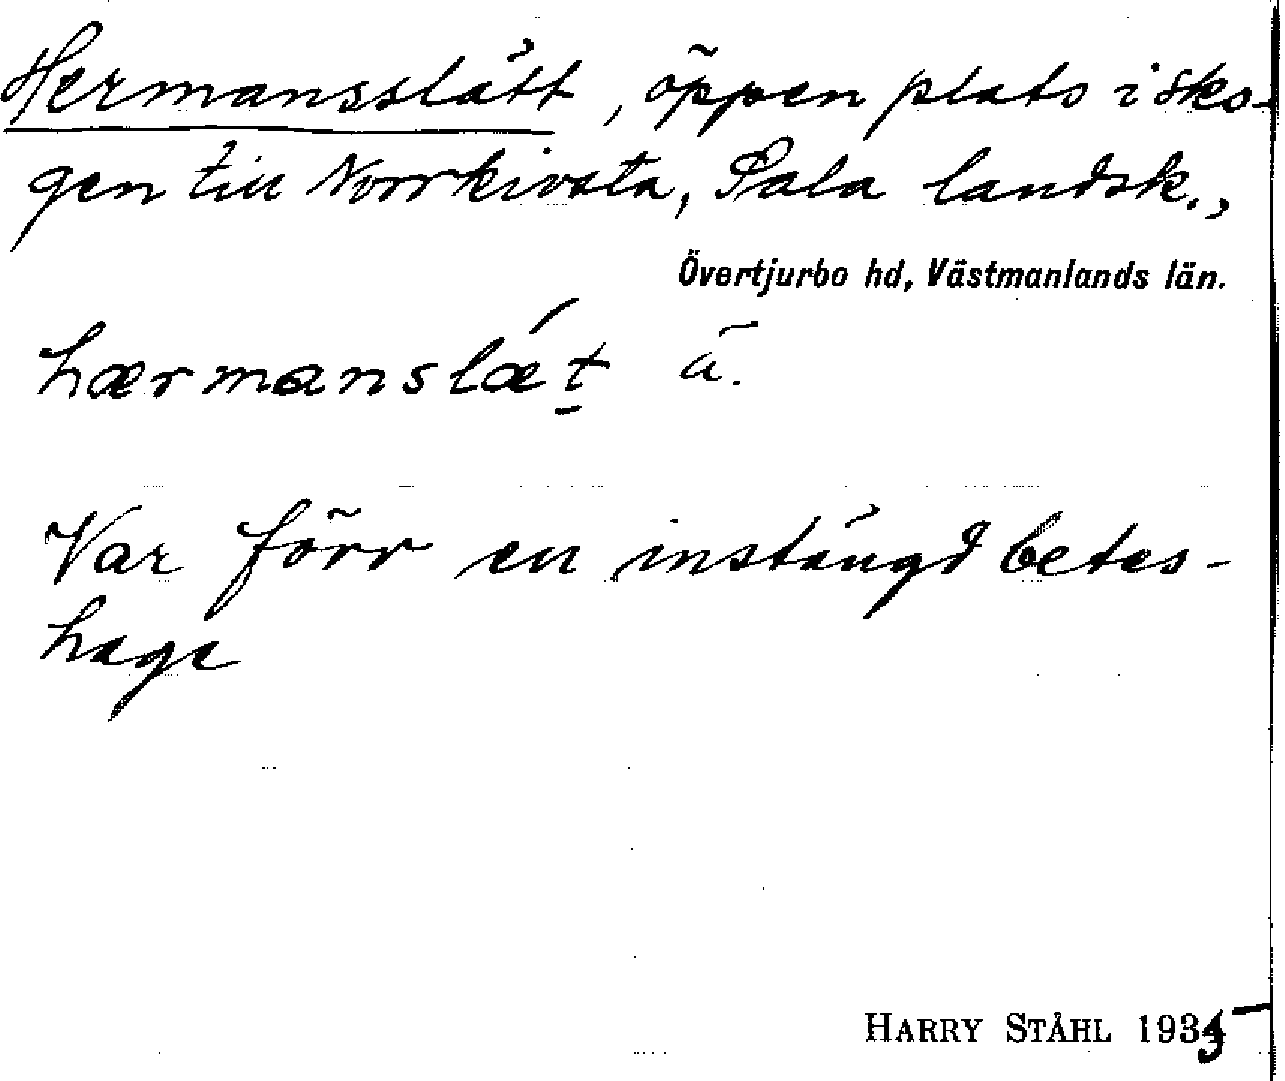 Hermansslätt, öppen plats i sko-
gen till Norrkivsta, Sala landsk.,
Övertjurbo hd, Västmanlands län.
hærmanslæ´t ä.
Var förr en instängd betes-
hage
HARRY STÅHL 1935